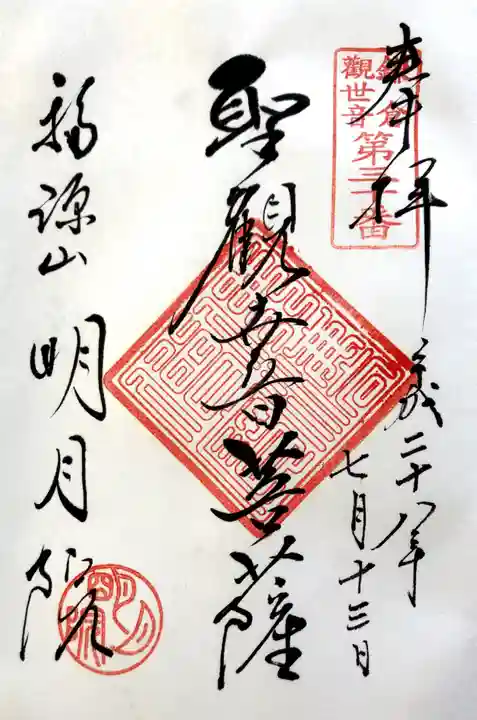 奉拝
鎌倉
観世音
第三十番
平成二十八年
七月十三日
聖観世音菩薩
福源山
明月院